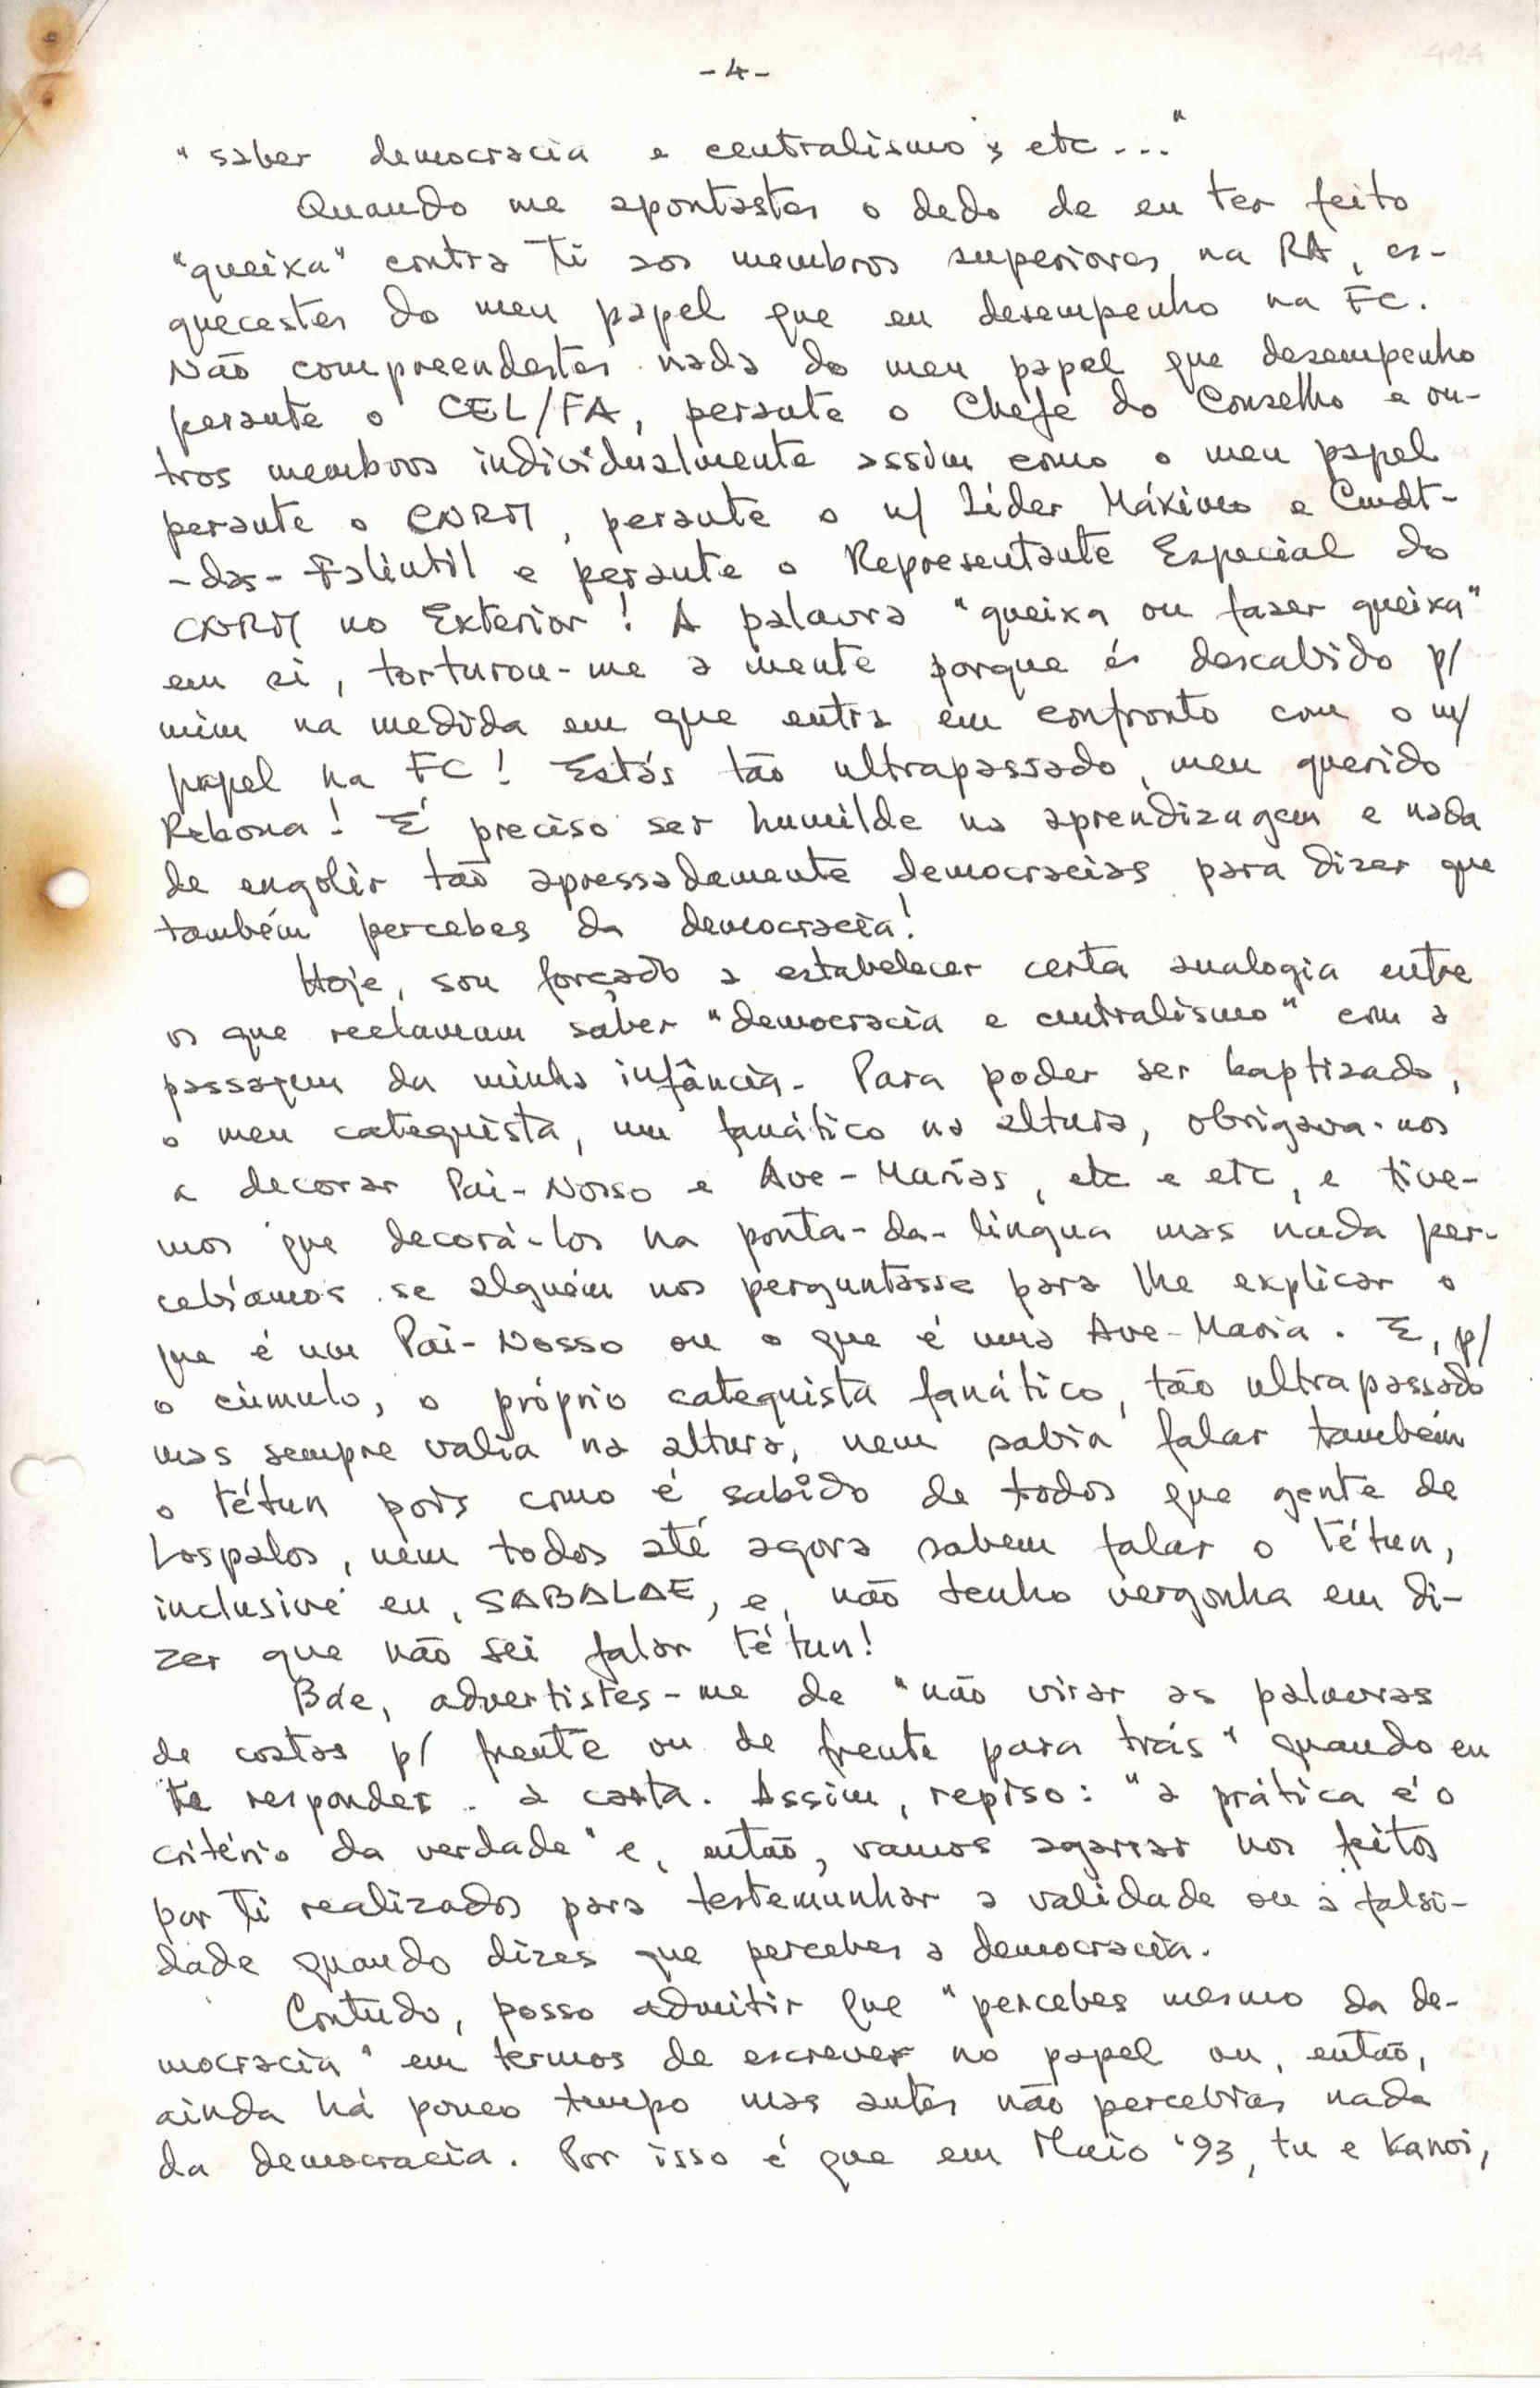 -4-
"saber democracia e centralismo, etc..."
Quando me apontastes o dedo de eu ter feito
"queixa" contra ti aos membros superiores na RA, es-
quecestes do meu papel que eu desempenho na FC.
Não compreendestes nada do meu papel que desempenho
perante o CEL/FA, perante o Chefe do Conselho e ou-
tros membros individualmente assim como o meu papel
perante o CNRM, perante o n/ Líder Máximo e Cmdt-
-das-Falintil e perante o Representante Especial do
CNRM no Exterior! A palavra "queixa ou fazer queixa"
em si, torturou-me a mente porque és descabido p/
mim na medida em que entra em confronto com o m/
papel na FC! Estás tão ultrapassado, meu querido
Rekona! É preciso ser humilde na aprendizagem e nada
de engolir tão apressadamente democracias para dizer que
também percebes da democracia!
Hoje, sou forçado a estabelecer certa analogia entre
os que reclamam saber "democracia e centralismo" com a
passagem da minha infância. Para poder ser baptizado,
o meu catequista, um fanático na altura, obrigava-nos
a decorar Pai-Nosso e Ave-Marias, etc e etc, e tive-
mos que decorá-los na ponta-da-língua mas nada per-
cebíamos se alguém nos perguntasse para lhe explicar o
que é um Pai-Nosso ou o que é uma Ave-Maria. E, p/
o cúmulo, o próprio catequista fanático, tão ultrapassado
mas sempre valia na altura, nem sabia falar também
o tétun pois como é sabido de todos que gente de
Lospalos, nem todos até agora sabem falar o tétun,
inclusivé eu, SABALAE, e, não tenho vergonha em di-
zer que não sei falar tétun!
Báe, advertistes-me de "não virar as palavras
de costas p/ frente ou de frente para trás" quando eu
te responder a carta. Assim, repiso: "a prática é o
critério da verdade" e, então, vamos agarrar nos feitos
por ti realizados para testemunhar a validade ou a falsi-
dade quando dizes que percebes a democracia.
Contudo, posso admitir que "percebes mesmo da de-
mocracia" em termos de escrever no papel ou, então,
ainda há pouco tempo mas antes não percebias nada
da democracia. Por isso é que em Maio '93, tu e Kanoi,